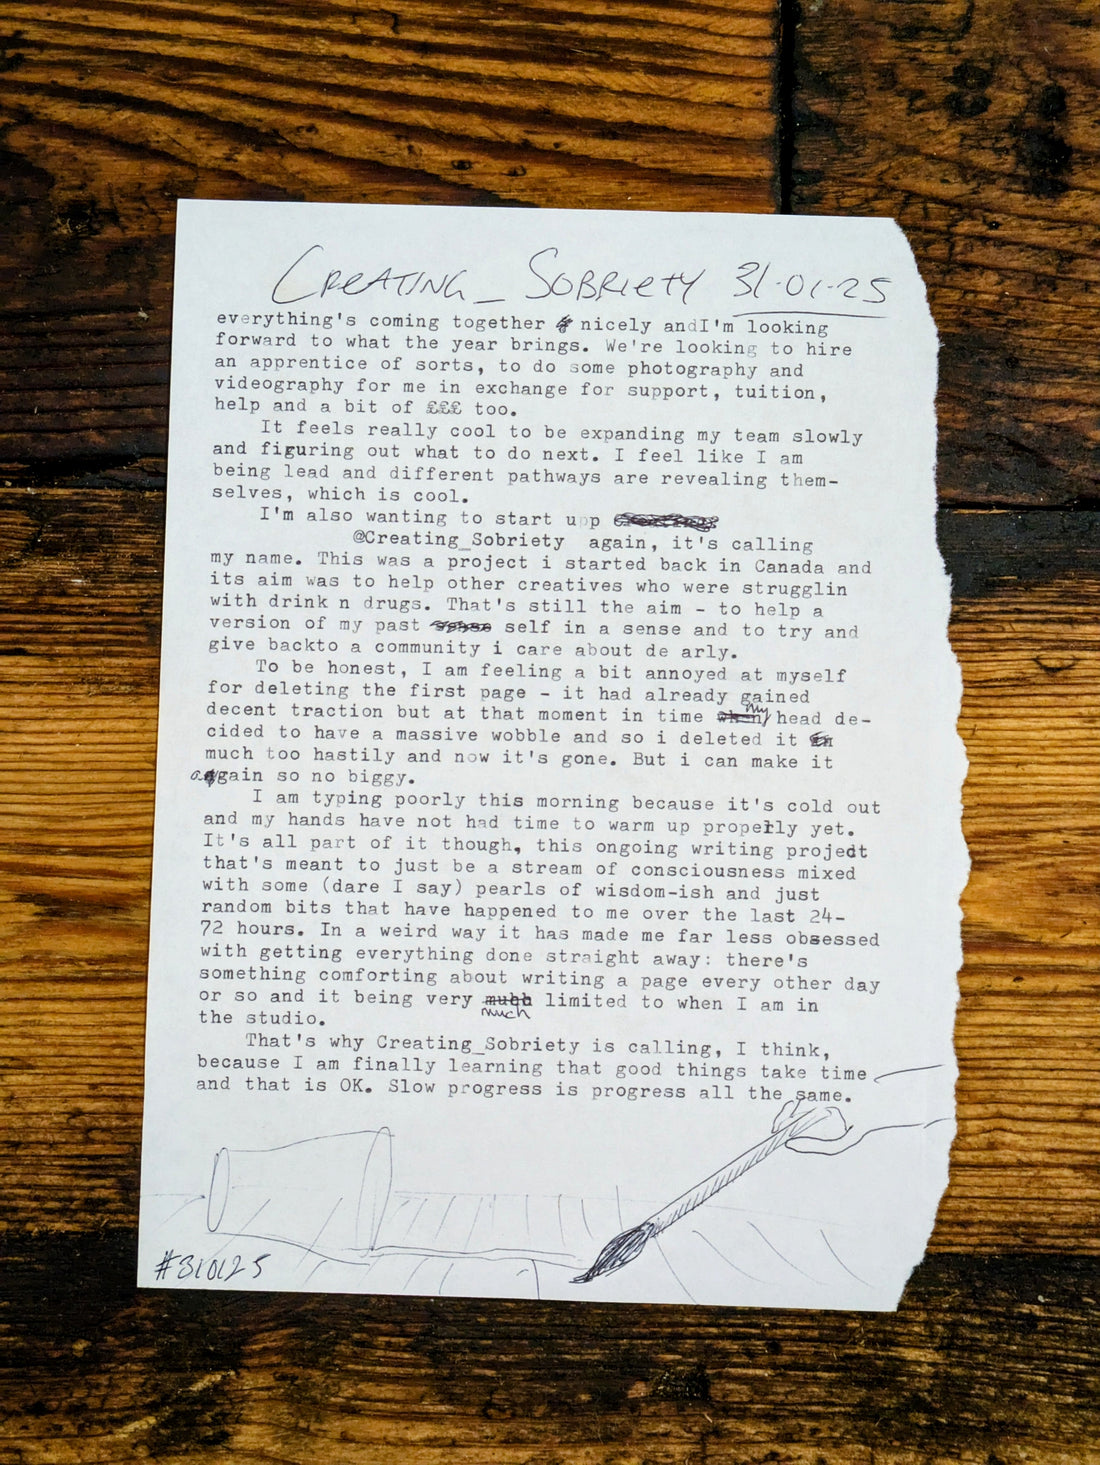 CREATING_SOBRIETY 31·01·25
everything's coming together nicely andI'm looking
forward to what the year brings. We're looking to hire
an apprentice of sorts, to do some photography and
videography for me in exchange for support, tuition,
help and a bit of £££ too.
It feels really cool to be expanding my team slowly
and figuring out what to do next. I feel like I am
being lead and different pathways are revealing them-
selves, which is cool.
I'm also wanting to start upp
@Creating_Sobriety again, it's calling
my name. This was a project i started back in Canada and
its aim was to help other creatives who were strugglin
with drink n drugs. That's still the aim - to help a
version of my past self in a sense and to try and
give backto a community i care about de arly.
To be honest, I am feeling a bit annoyed at myself
for deleting the first page - it had already gained
decent traction but at that moment in time my head de-
cided to have a massive wobble and so i deleted it
much too hastily and now it's gone. But i can make it
again so no biggy.
I am typing poorly this morning because it's cold out
and my hands have not had time to warm up properly yet.
It's all part of it though, this ongoing writing project
that's meant to just be a stream of consciousness mixed
with some (dare I say) pearls of wisdom-ish and just
random bits that have happened to me over the last 24-
72 hours. In a weird way it has made me far less obsessed
with getting everything done straight away: there's
something comforting about writing a page every other day
or so and it being very much limited to when I am in
the studio.
That's why Creating_Sobriety is calling, I think,
because I am finally learning that good things take time
and that is OK. Slow progress is progress all the same.
#310125